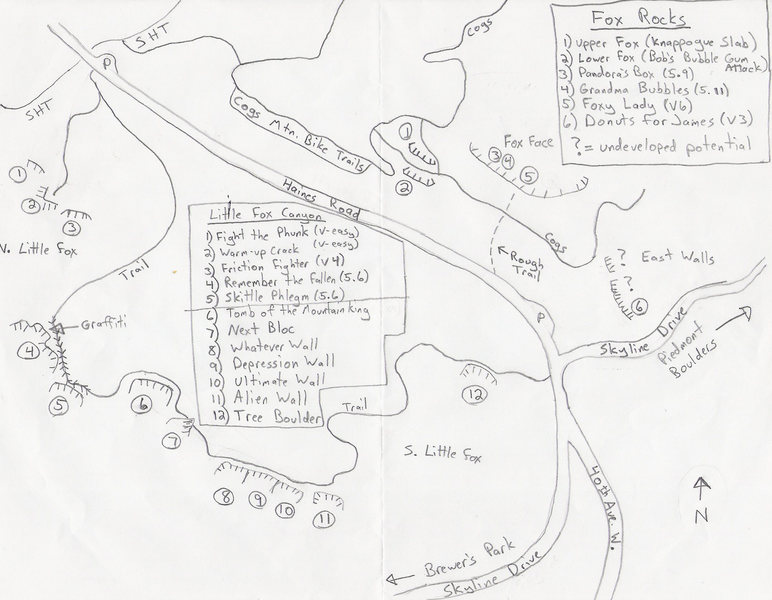 Fox Rocks
1) Upper Fox (Knappogue Slab)
2) Lower Fox (Bob's Bubble Gum Attack)
3) Pandora's Box (5.9)
4) Grandma Bubbles (5.11)
5) Foxy Lady (V6)
6) Donuts for James (V3)
? = undeveloped potential
SHT
P
SHT
Cogs
Cogs Mtn. Bike Trails
1
2
Fox Face
3 4
5
Haines Road
Cogs
Rough Trail
? East Walls
?
6
P
Skyline Drive
Piedmont Boulders
1
2
3
N. Little Fox
Trail
Graffiti
4
5
6
7
8
9
10
11
Little Fox Canyon
1) Fight the Phunk (V-easy)
2) Warm-up Crack (V-easy)
3) Friction Fighter (V4)
4) Remember the Fallen (5.6)
5) Skittle Phlegm (5.6)
6) Tomb of the Mountain King
7) Next Bloc
8) Whatever Wall
9) Depression Wall
10) Ultimate Wall
11) Alien Wall
12) Tree Boulder
Trail
12
S. Little Fox
40th Ave. W.
N
Brewer's Park
Skyline Drive